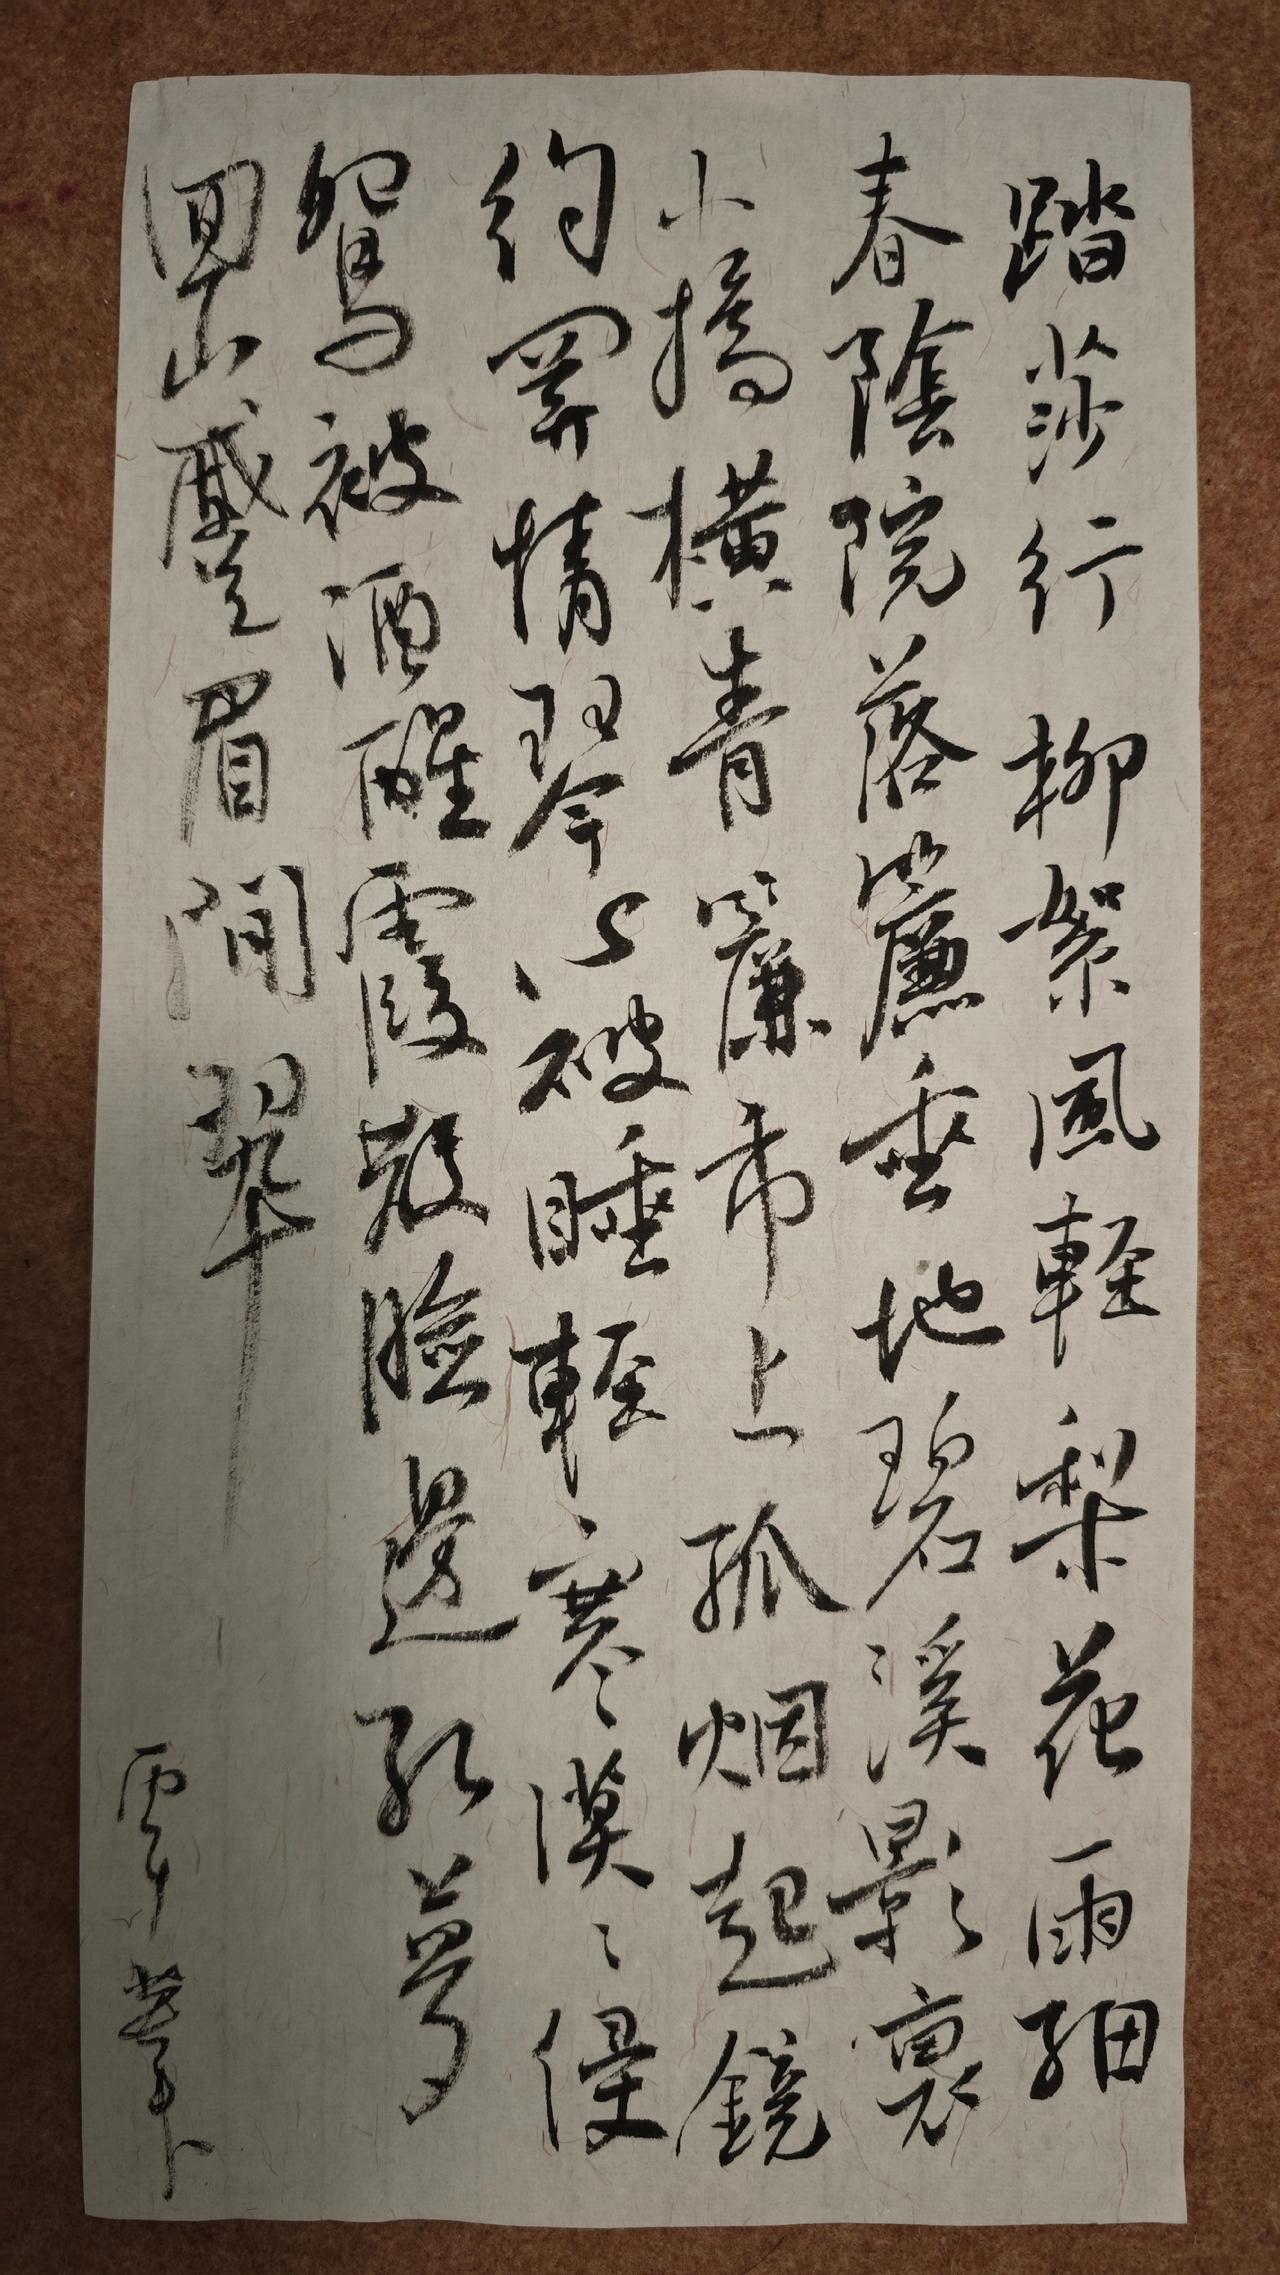 踏莎行 柳絮風輕梨花雨細
春陰院落簾垂地碧溪影裏
小橋橫青簾市上孤烟起鏡
約関情琴心破睡輕寒漠〻侵
鴛被酒醒霞散臉邊紅夢
回山蹙眉間翠